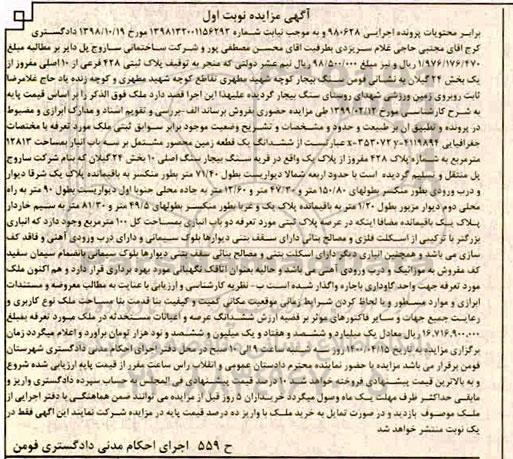 آگهی مزایده نوبت اول
برابر محتویات پرونده اجرایی ۹۸۰۶۲۸ و به موجب نیابت شماره ۱۳۹۸۱۳۲۰۰۱۱۵۶۲۹۲ مورخ ۱۳۹۸/۱۰/۱۹ دادگستری
کرج آقای مجتبی حاجی غلام سریزدی بطرفیت آقای محسن مصطفی پور و شرکت ساختمانی ساروج پل دایر بر مطالبه مبلغ
۱/۹۷۶/۱۷۶/۴۷۰ ریال و نیز مبلغ ۹۸/۵۰۰/۰۰۰ ریال نیم عشر دولتی که منجر به توقیف پلاک ثبتی ۴۲۸ فرعی از ۱۰ اصلی مفروز از
یک بخش ۲۴ گیلان به نشانی فومن سنگ بیجار کوچه شهید مطهری تقاطع کوچه شهید مطهری و کوچه زنده یاد حاج غلامرضا
ثابت روبروی زمین ورزشی شهدای روستای سنگ بیجار گردیده علیهذا این اجرا قصد دارد ملک فوق الذکر را بر اساس قیمت پایه
به شرح کارشناسی مورخ ۱۳۹۹/۰۲/۱۳ طی مزایده حضوری بفروش برساند الف-بررسی و تقویم اسناد و مدارک ابرازی و مضبوط
در پرونده و تطبیق آن بر طبیعت و حدود و مشخصات و تشریح وضعیت موجود برابر سوابق ثبتی ملک مورد تعرفه با مختصات
جغرافیایی x-۳۵۳۰۷۲ y-۴۱۱۹۸۹۴ عبارتست از ششدانگ یک قطعه زمین محصور مشتمل بر سه باب انبار بمساحت ۱۲۸۱۳
مترمربع به شماره پلاک ۴۲۸ مفروز از پلاک یک واقع در قریه سنگ بیجار سنگ اصلی ۱۰ بخش ۲۴ گیلان که بنام شرکت ساروج
پل منتقل و تسلیم گردیده است با حدود اربعه شمالا دیواریست بطول ۷۱/۴۰ متر بطور منکسر به باقیمانده پلاک یک شرقا دیوار
و درب ورودی بطور منکسر بطولهای ۱۵۰/۸۰ متر و ۴۷/۳۰ متر و ۱۲/۶۰ متر به جاده محلی جنوبا اول دیواریست بطول ۹۰ متر به راه
محلی دوم دیوار مزبور بطول ۱/۲۰ متر به باقیمانده پلاک یک و غربا بطور منکسر بطولهای ۴۹/۵ متر و ۸۱/۳۰ متر به سیم خاردار
پلاک یک باقیمانده مضافا اینکه در عرصه پلاک ثبتی مورد تعرفه دو باب انباری بمساحت کل ۱۰۰ مترمربع وجود دارد که انباری
بزرگتر با ترکیبی از اسکلت فلزی و مصالح بنائی دارای سقف بتنی دیوارها بلوک سیمانی و دارای درب ورودی آهنی و فاقد کف
سازی می باشد و همچنین انباری دیگر دارای اسکلت بتنی و مصالح بنائی سقف بتنی دیوارها بلوک سیمانی بانضمام سیمان سفید
کف مفروش به موزائیک و درب ورودی آهنی می باشد و حالیه بعنوان اتاقک نگهبانی مورد بهره برداری قرار دارد و هم اکنون ملک
مورد تعرفه جهت واحد گاوداری باجاره واگذار شده است ب - نظریه کارشناسی و ارزیابی با عنایت به مطالب معروضه و مستندات
ابرازی و موارد مسطور و با لحاظ کردن شرایط زمانی موقعیت مکانی کمیت و کیفیت بنا قدمت بنا مساحت ملک نوع کاربری و
رعایت جمیع جهات و سایر فاکتورهای موثر بر قضیه ارزش ششدانگ عرصه و اعیانات مستحدثه در ملک مورد تعرفه بمبلغ
۱۶.۷۱۶.۹۰۰.۰۰۰ ریال معادل یک میلیارد و ششصد و هفتاد و یک میلیون و ششصد و نود هزار تومان برآورد و اعلام میگردد زمان
برگزاری مزایده به تاریخ ۱۴۰۰/۰۴/۱۵ روز سه شنبه ساعت ۹ الی ۱۰ صبح در محل دفتر اجرای احکام مدنی دادگستری شهرستان
فومن برقرار می باشد مزایده با حضور نماینده محترم دادستان عمومی و انقلاب راس ساعت مقرر از قیمت پایه ارزیابی شده شروع
و به بالاترین قیمت پیشنهادی فروخته خواهد شد ۱۰ درصد قیمت پیشنهادی فی المجلس به حساب سپرده دادگستری واریز و
مابقی حداکثر ظرف مهلت یک ماه وصول میگردد خریداران ۵ روز قبل از مزایده می توانند ضمن هماهنگی با دفتر اجرایی از
ملک موصوف بازدید و در صورت تمایل به خرید ملک با واریز ده درصد قیمت پایه در مزایده شرکت نمایند این آگهی فقط در
یک نوبت منتشر خواهد شد
ح ۵۵۹ اجرای احکام مدنی دادگستری فومن